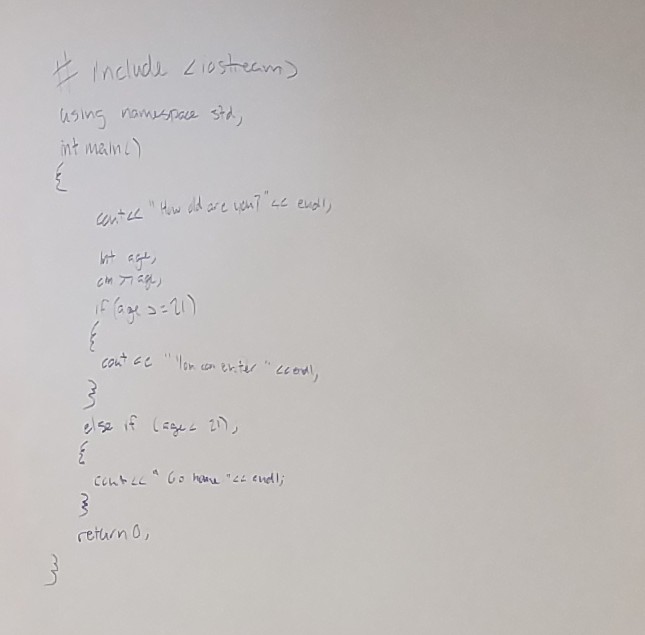 # include <iostream>
using namespace std;
int main()
{
cout<< "How old are you?"<< endl;
int age;
cin >>age;
if (age >=21)
{
cout << "You can enter "<<endl;
}
else if (age < 21);
{
cout<< "Go home "<< endl;
}
return 0;
}